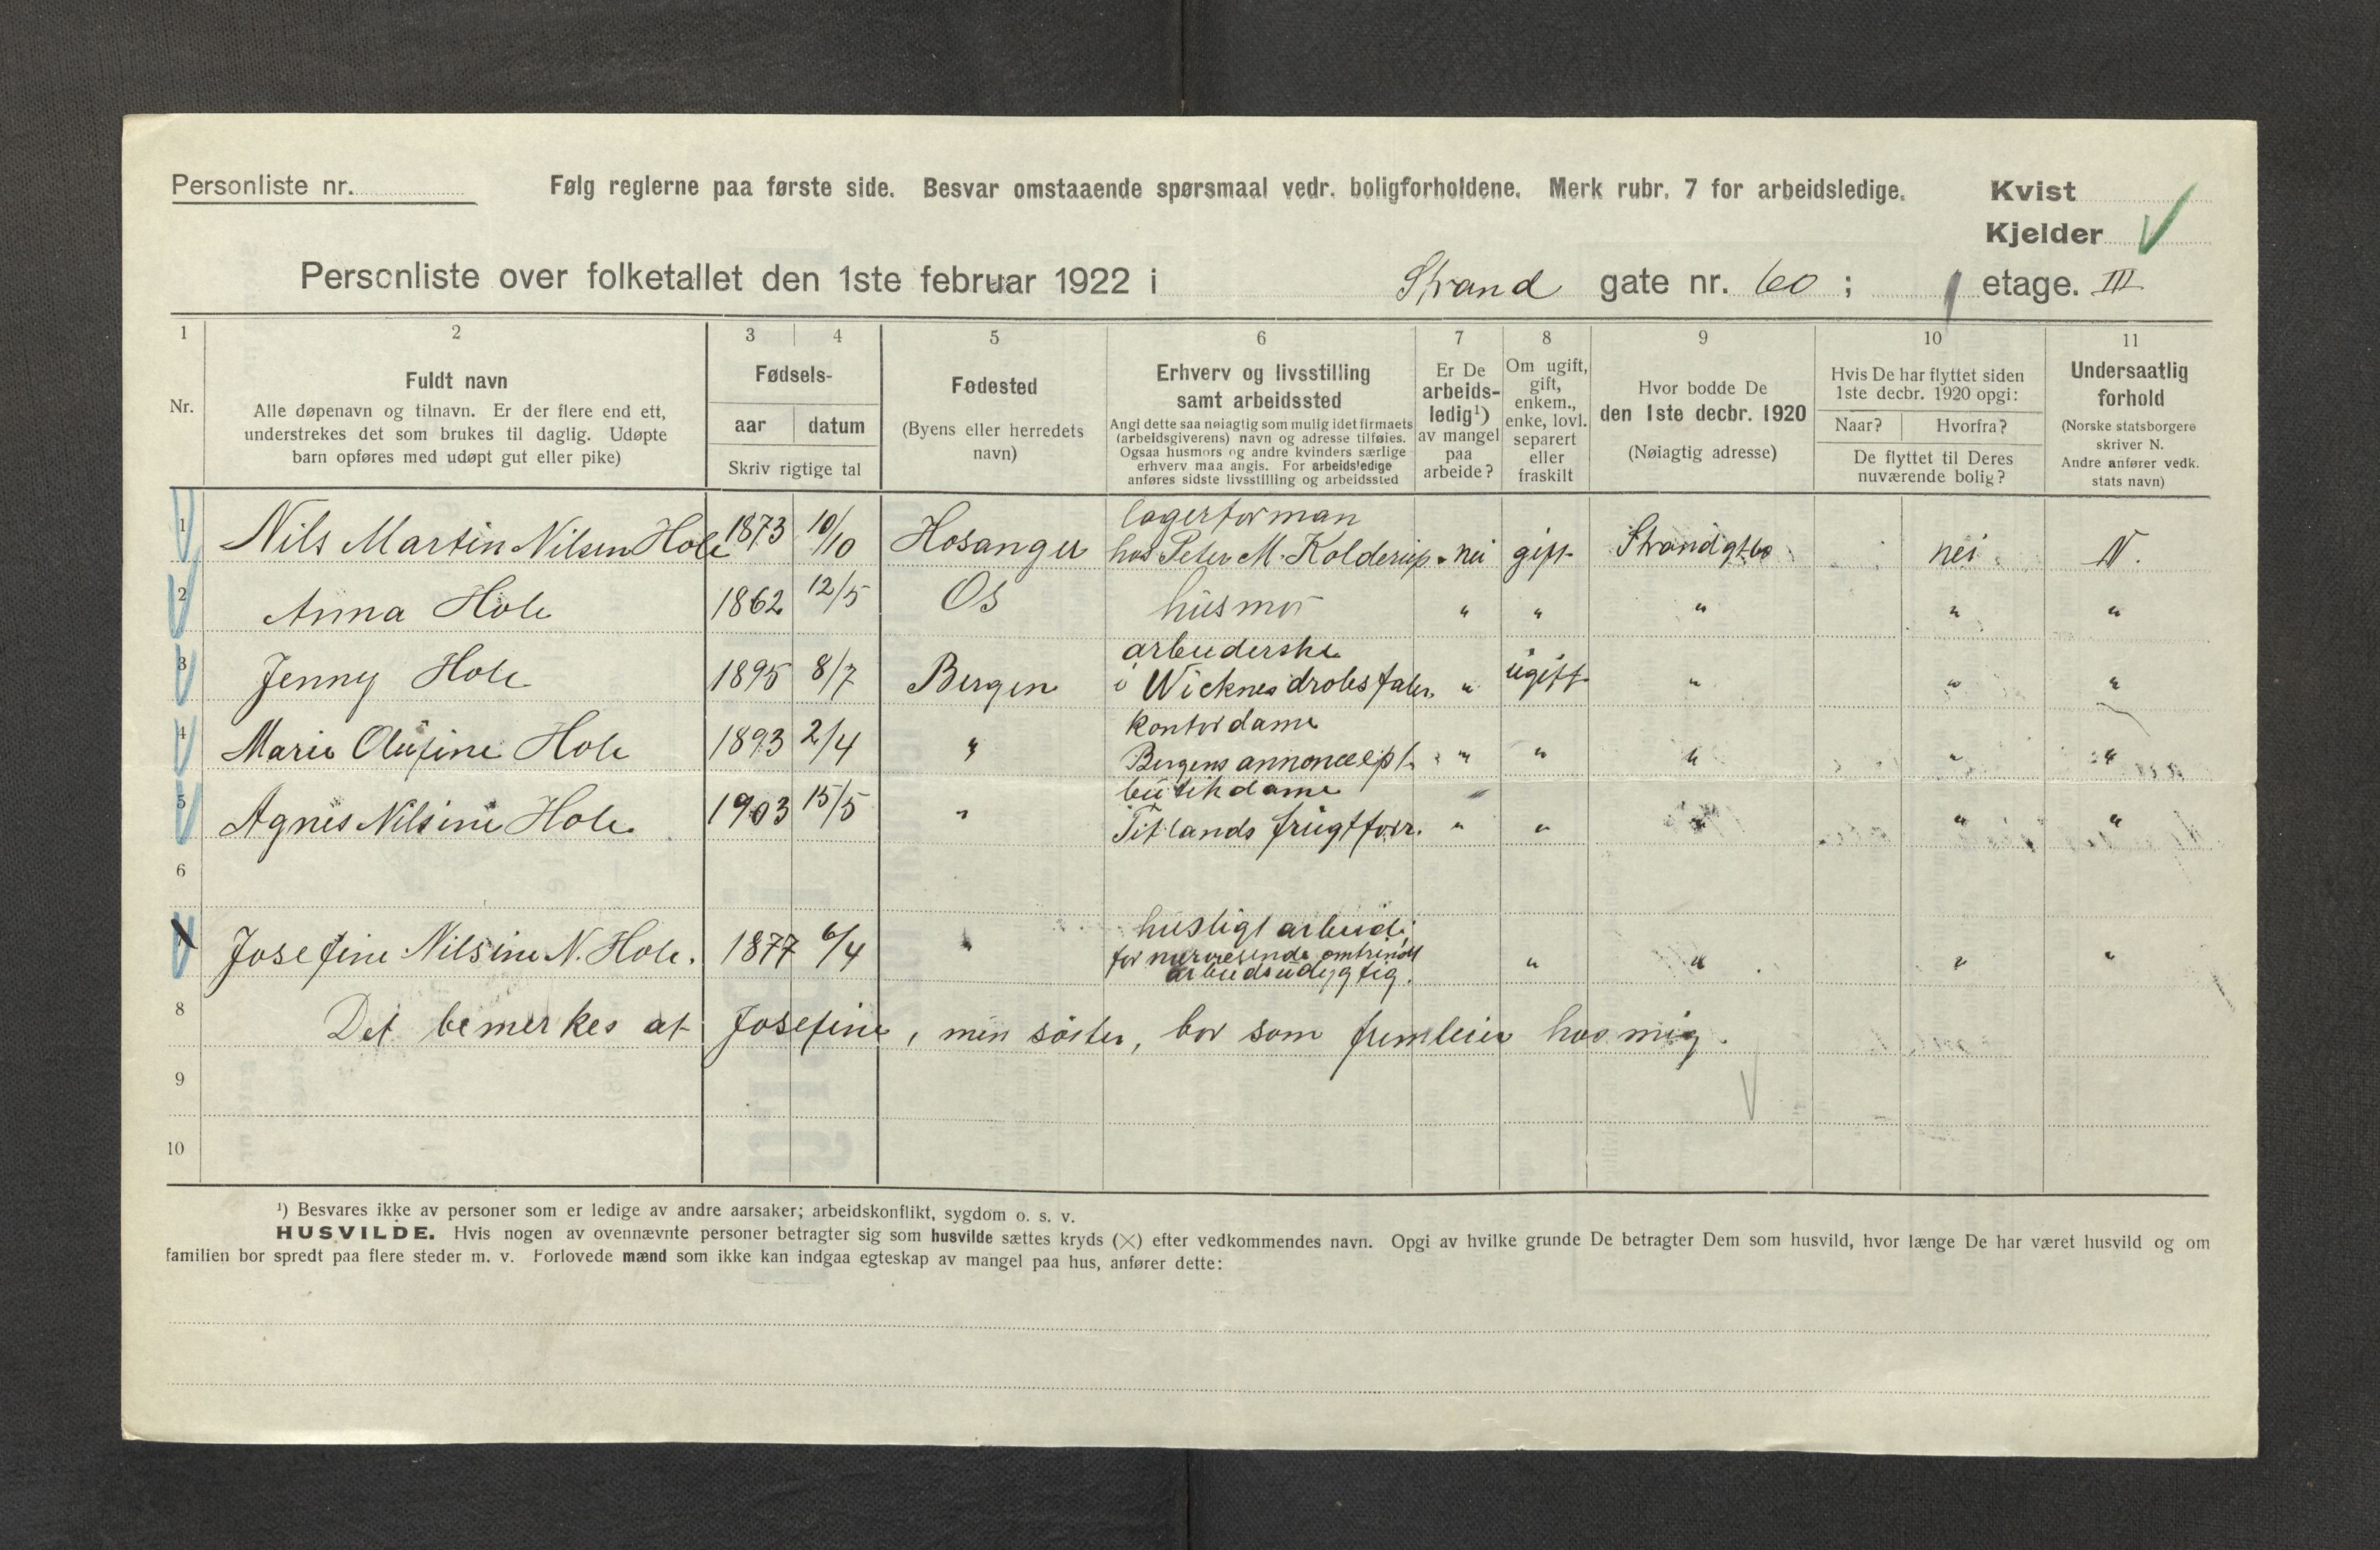 Personliste nr.
Følg reglerne paa første side. Besvar omstaaende spørsmaal vedr. boligforholdene. Merk rubr. 7 for arbeidsledige.
Kvist
Kjelder
Personliste over folketallet den 1ste februar 1922 i Strand gate nr. 60 ; etage. III
1 2 3 4 5 6 7 8 9 10 11
Nr.
Fuldt navn
Alle døpenavn og tilnavn. Er der flere end ett,
understrekes det som brukes til daglig. Udøpte
barn opføres med udøpt gut eller pike)
Fødsels-
aar datum
Skriv rigtige tal
Fødested
(Byens eller herredets
navn)
Erhverv og livsstilling
samt arbeidssted
Angi dette saa nøiagtig som mulig idet firmaets
(arbeidsgiverens) navn og adresse tilføies.
Ogsaa husmors og andre kvinders særlige
erhverv maa angis. For arbeidsledige
anføres sidste livsstilling og arbeidssted
Er De
arbeids-
ledig¹)
av mangel
paa
arbeide?
Om ugift,
gift,
enkem.,
enke, lovl.
separert
eller
fraskilt
Hvor bodde De
den 1ste decbr. 1920
(Nøiagtig adresse)
Hvis De har flyttet siden
1ste decbr. 1920 opgi:
Naar? Hvorfra?
De flyttet til Deres
nuværende bolig?
Undersaatlig
forhold
(Norske statsborgere
skriver N.
Andre anfører vedk.
stats navn)
1 Nils Martin Nilsen Hole 1873 10/10 Hosanger lagerforman
hos Peter M. Kolderup. nei gift Strandgt 60 nei N.
2 Anna Hole 1862 12/5 Os husmor " " " " "
3 Jenny Hole 1895 8/7 Bergen arbeiderske
i Wicknes dropsfabr. " ugift " " "
4 Marie Olufine Hole 1893 2/4 " kontordame
Bergens annonceexp. " " " " "
5 Agnes Nilsine Hole. 1903 15/5 " butikdame
Titlands frugtforr. " " " " "
6
7 Josefine Nilsine N. Hole. 1877 6/4 " husligt arbeid;
for nærværende omtrindt
arbeidsudygtig. " " " "
8 Det bemerkes at Josefine, min søster, bor som fremleier hos mig.
9
10
¹) Besvares ikke av personer som er ledige av andre aarsaker; arbeidskonflikt, sygdom o. s. v.
HUSVILDE. Hvis nogen av ovennævnte personer betragter sig som husvilde sættes kryds (×) efter vedkommendes navn. Opgi av hvilke grunde De betragter Dem som husvild, hvor længe De har været husvild og om
familien bor spredt paa flere steder m. v. Forlovede mænd som ikke kan indgaa egteskap av mangel paa hus, anfører dette: